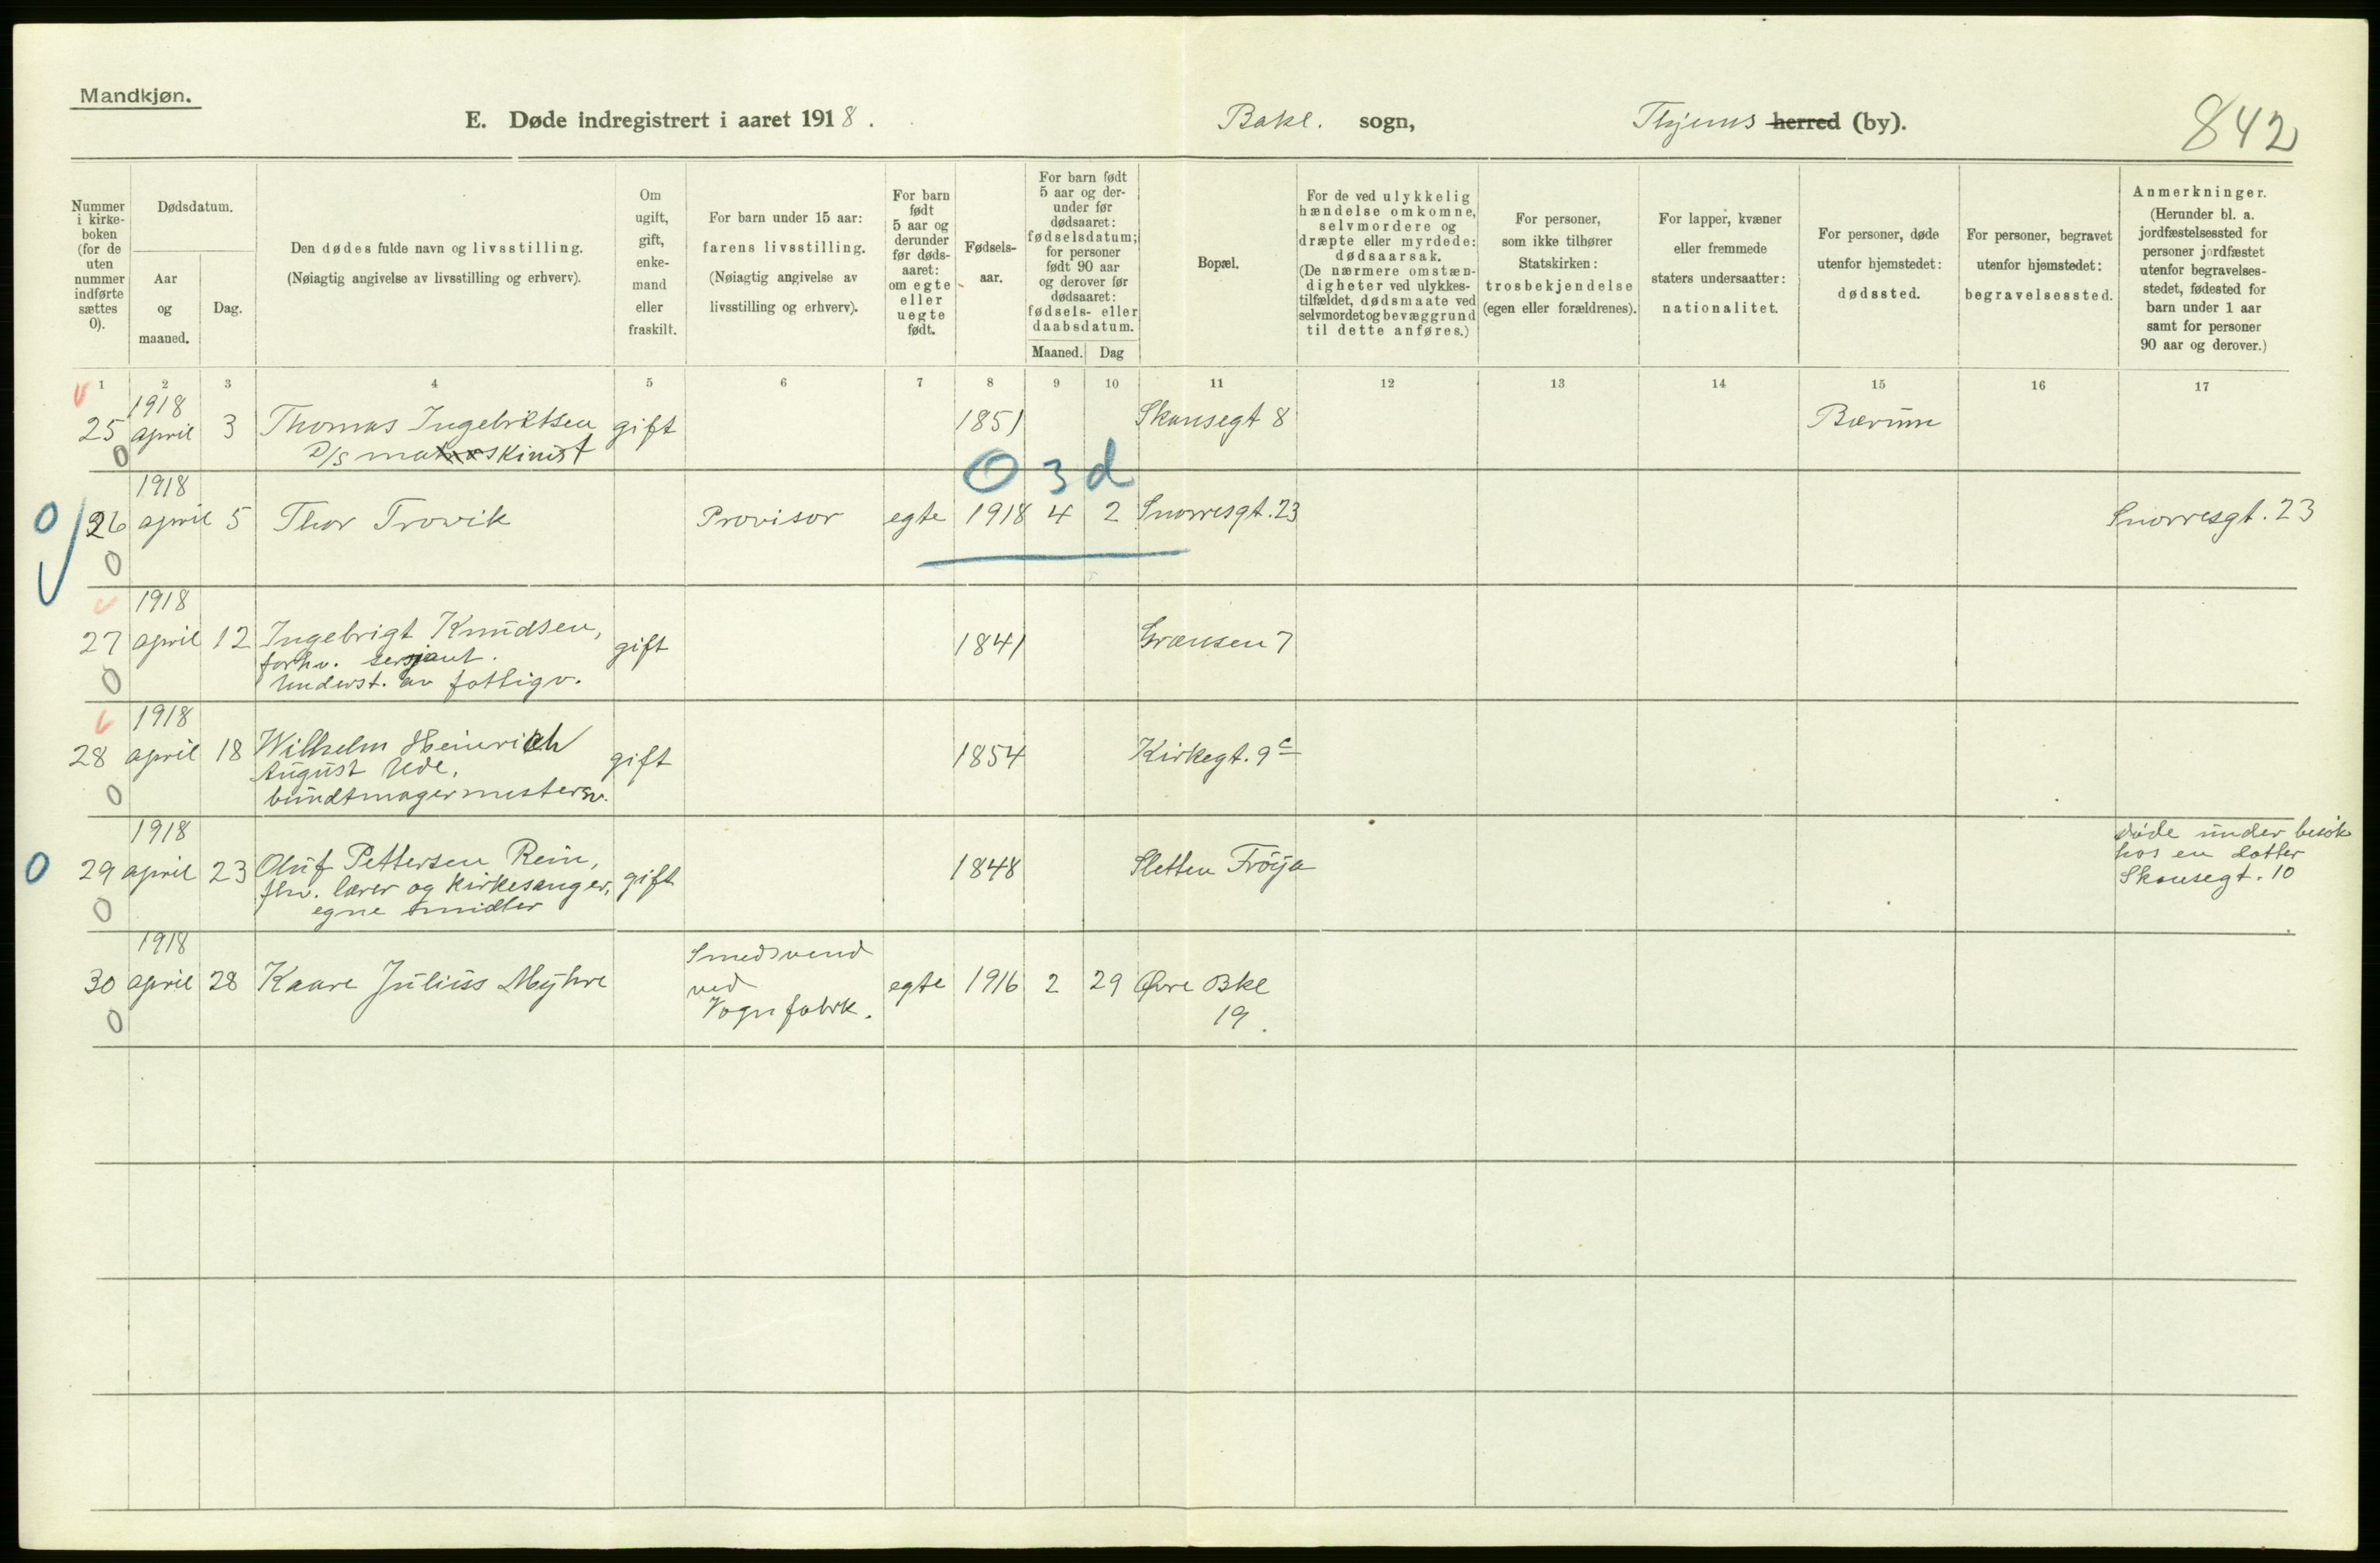 Mandkjøn.
E. Døde indregistrert i aaret 1918.
Bakl. sogn,
Thjems herred (by).
842
Nummer i kirke-boken (for de uten nummer indførte sættes 0).
Dødsdatum.
Aar og maaned.
Dag.
Den dødes fulde navn og livsstilling.
(Nøiagtig angivelse av livsstilling og erhverv).
Om ugift, gift, enke-mand eller fraskilt.
For barn under 15 aar:
farens livsstilling.
(Nøiagtig angivelse av livsstilling og erhverv).
For barn født 5 aar og derunder før døds-aaret: om egte eller uegte født.
Fødsels-aar.
For barn født 5 aar og der-under før dødsaaret: fødselsdatum; for personer født 90 aar og derover før dødsaaret: fødsels- eller daabsdatum.
Maaned. Dag
Bopæl.
For de ved ulykkelig hændelse omkomne, selvmordere og dræpte eller myrdede: dødsaarsak.
(De nærmere omstæn-digheter ved ulykkes-tilfældet, dødsmaate ved selvmordet og bevæggrund til dette anføres.)
For personer, som ikke tilhører Statskirken: trosbekjendelse (egen eller forældrenes).
For lapper, kvæner eller fremmede staters undersaatter: nationalitet.
For personer, døde utenfor hjemstedet: dødssted.
For personer, begravet utenfor hjemstedet: begravelsessted.
Anmerkninger.
(Herunder bl. a. jordfæstelsessted for personer jordfæstet utenfor begravelses-stedet, fødested for barn under 1 aar samt for personer 90 aar og derover.)
1 2 3 4 5 6 7 8 9 10 11 12 13 14 15 16 17
1918
25 april 3 Thomas Ingebriktsen gift 1851 Skansegt 8 Bærum
0 D/S maskinist
0 3 d
1918
0 26 april 5 Thor Trovik Provisor egte 1918 4 2 Snorresgt. 23 Snorresgt. 23
0
1918
27 april 12 Ingebrigt Knudsen, gift 1841 Grænsen 7
forhv. sersjant.
0 Underst. av fattigv.
1918
28 april 18 Wilhelm Heinrich gift 1854 Kirkegt. 9c
August Ude,
0 bundtmagermester
1918
0 29 april 23 Oluf Pettersen Rein, gift 1848 Sletten Frøya
fhv. lærer og kirkesanger,
0 egne midler
døde under besøk
hos en datter
Skansegt. 10
1918
30 april 28 Kaare Julius Myhre Smedsvend egte 1916 2 29 Øvre Bkl
ved
0 Vognfabrk. 19.